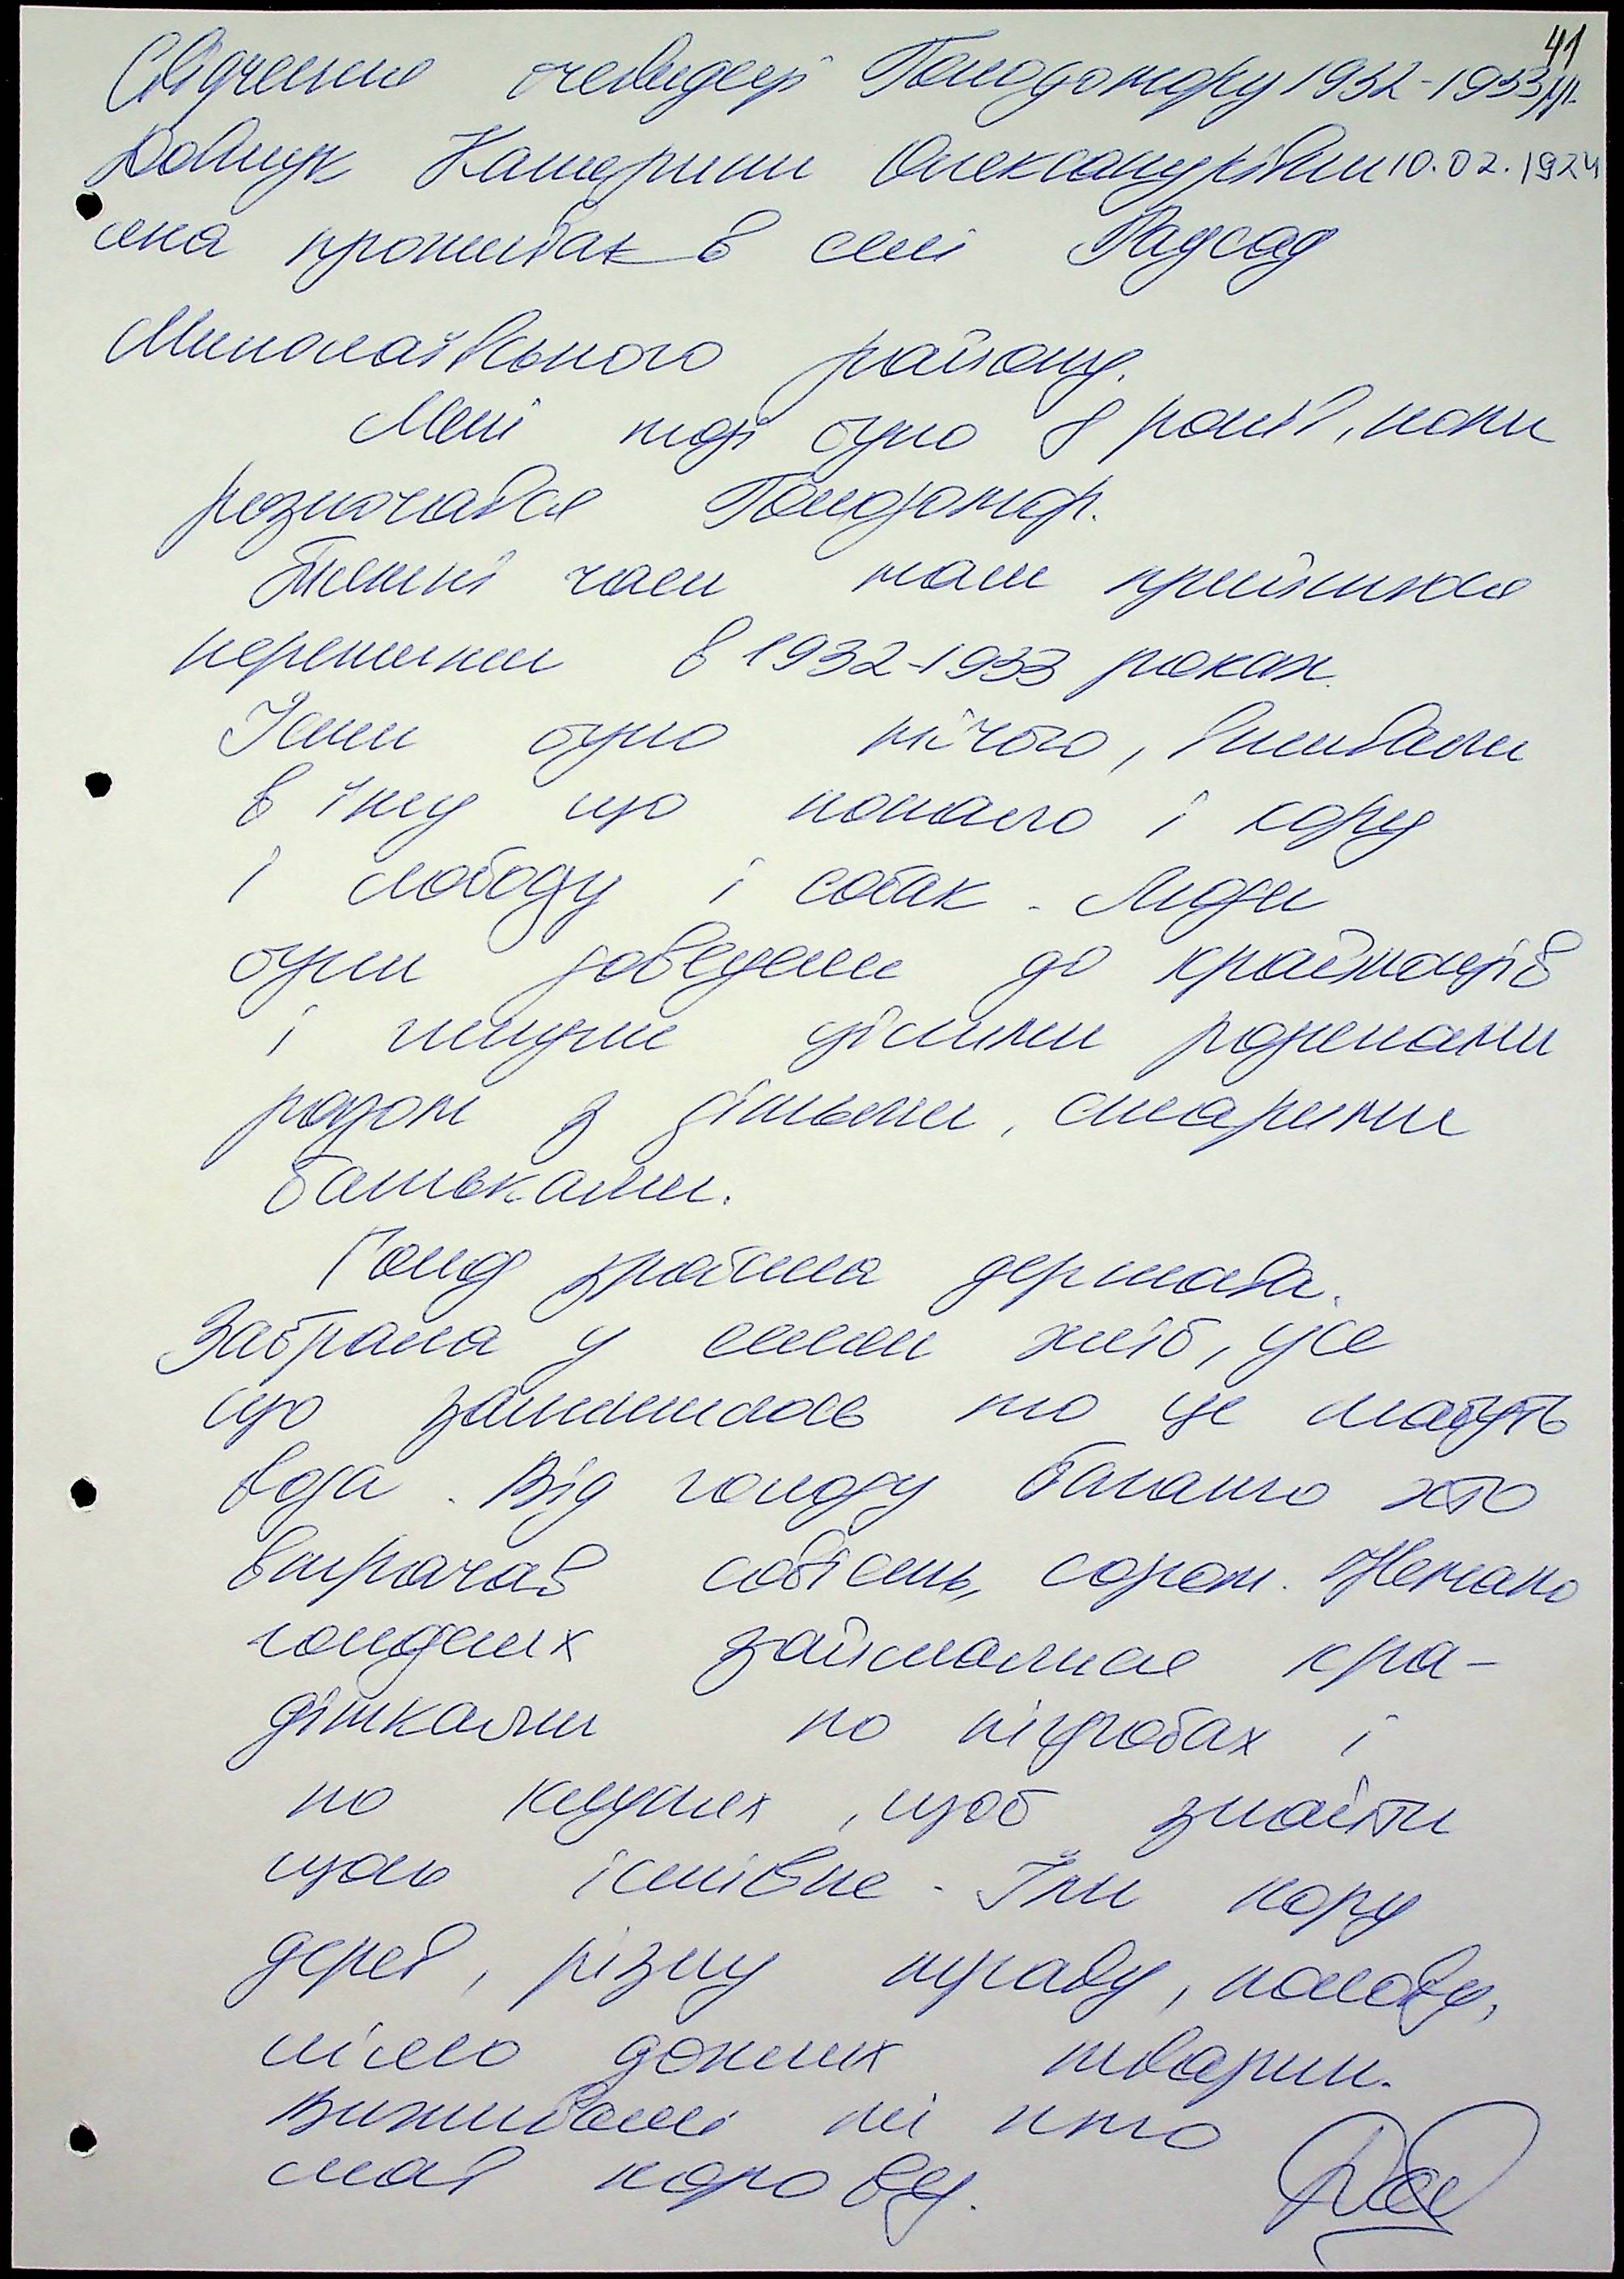 41
Свідчення очевидця Голодомору 1932-1933рр.
Довщук Катерини Олександрівни 10.02.1924
яка проживає в селі Радсад
Миколаївського району.
Мені тоді було 8 років, коли
розпочався Голодомор.
Тяжкі часи нам прийшлося
пережити в 1932-1933 роках.
Їсти було нічого, вживали
в їжу що попало і кору
і лободу і собак. Люди
були доведені до крайнощів
і гинули цілими родинами
разом з дітьми, старими
батьками.
Голод зробила держава.
Забрала у селян хліб, усе
що залишилось то це мабуть
вода. Від голоду багато хто
втрачав совість, сором. Немало
голодних займалися кра-
діжками по погребах і
по клунях, щоб знайти
щось їстівне. Їли кору
дерев, різну траву, полову,
м'ясо дохлих тварин.
Виживали ті хто
мав корову.